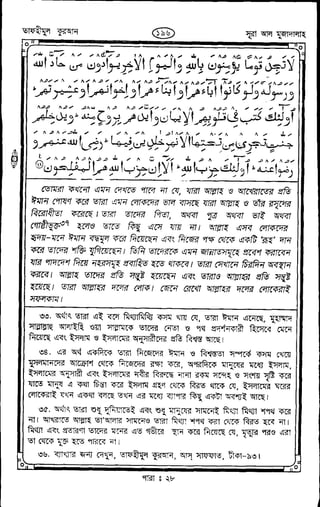 তাফহীমুল কুরআন
১৯৬
সূরা আল মুজাদালাহ
لَا تَجِدُ قَوْمًا يُّؤْمِنُوْنَ بِاللّٰهِ وَالْيَوْمِ الْاٰخِرِ يُوَآدُّوْنَ مَنْ حَآدَّ اللّٰهَ
وَرَسُوْلَهٗ وَلَوْ كَانُوْٓا اٰبَآءَهُمْ اَوْ اَبْنَآءَهُمْ اَوْ اِخْوَانَهُمْ اَوْ عَشِيْرَتَهُمْ ؕ
اُولٰٓئِكَ كَتَبَ فِيْ قُلُوْبِهِمُ الْاِيْمَانَ وَاَيَّدَهُمْ بِرُوْحٍ مِّنْهُ ؕ وَيُدْخِلُهُمْ
جَنّٰتٍ تَجْرِيْ مِنْ تَحْتِهَا الْاَنْهٰرُ خٰلِدِيْنَ فِيْهَا ؕ رَضِيَ اللّٰهُ عَنْهُمْ وَ
رَضُوْا عَنْهُ ؕ اُولٰٓئِكَ حِزْبُ اللّٰهِ ؕ اَلَآ اِنَّ حِزْبَ اللّٰهِ هُمُ الْمُفْلِحُوْنَ
তোমরা কখনো এমন দেখতে পাবে না যে, যারা আল্লাহ ও আখেরাতের প্রতি
ঈমান পোষণ করে তারা এমন লোকদের ভাল বাসছে যারা আল্লাহ ও তাঁর রসূলের
বিরোধীতা করেছে। তারা তাদের পিতা, অথবা পুত্র অথবা ভাই অথবা
গোষ্ঠীভুক্ত৩৭ হলেও তাতে কিছু এসে যায় না। আল্লাহ এসব লোকদের
হৃদয়-মনে ঈমান বদ্ধমূল করে দিয়েছেন এবং নিজের পক্ষ থেকে একটি 'রূহ' দান
করে তাদের শক্তি যুগিয়েছেন। তিনি তাদেরকে এমন জান্নাতসমূহে প্রবেশ করাবেন
যার পাদদেশ দিয়ে নহরসমূহ প্রবাহিত হতে থাকবে। তারা সেখানে চিরদিন অবস্থান
করবে। আল্লাহ তাদের প্রতি সন্তুষ্ট হয়েছেন এবং তারাও আল্লাহর প্রতি সন্তুষ্ট
হয়েছে। তারা আল্লাহর দলের লোক। জেনে রেখো আল্লাহর দলের লোকেরাই
সফলকাম।
৩৩. অর্থাৎ তারা এই বলে মিছামিছি কসম খায় যে, তারা ঈমান এনেছে, মুহাম্মাদ
সাল্লাল্লাহু আলাইহি ওয়া সাল্লামকে তাদের নেতা ও পথ প্রদর্শনকারী হিসেবে মেনে
নিয়েছে এবং ইসলাম ও ইসলামের অনুসারীদের প্রতি বিশ্বস্ত আছে।
৩৪. এর অর্থ একদিকে তারা নিজেদের ঈমান ও বিশ্বস্ততা সম্পর্কে কসম খেয়ে
মুসলমানদের আক্রোশ থেকে নিজেদের রক্ষা করে, অপরদিকে মানুষের মধ্যে ইসলাম,
ইসলামের অনুসারী এবং ইসলামের নবীর বিরুদ্ধে নানা রকম সন্দেহ ও সংশয় সৃষ্টি করে
যাতে মানুষ এ কথা চিন্তা করে ইসলাম গ্রহণ থেকে বিরত থাকে যে, ইসলামের ঘরের
লোকেরাই যখন একথা বলছে তখন এর মধ্যে ব্যাপার কিছু একটা অবশ্যই আছে।
৩৫. অর্থাৎ তারা শুধু দুনিয়াতেই এবং শুধু মানুষের সামনেই মিথ্যা মিথ্যা শপথ করে
না। আখেরাতে আল্লাহ তা'আলার সামনেও তারা মিথ্যা শপথ করা থেকে বিরত হবে না।
মিথ্যা এবং প্রতারণা তাদের মনের এত গভীরে স্থান করে নিয়েছে যে, মৃত্যুর পরও এরা
তা থেকে মুক্ত হতে পারবে না।
৩৬. ব্যাখ্যার জন্য দেখুন, তাফহীমুল কুরআন, আস্ সাফফাত, টীকা-৯৩।
পারা : ২৮